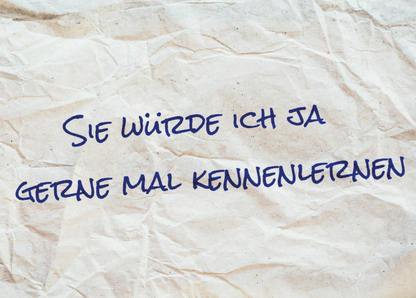 Sie würde ich ja
gerne mal kennenlernen